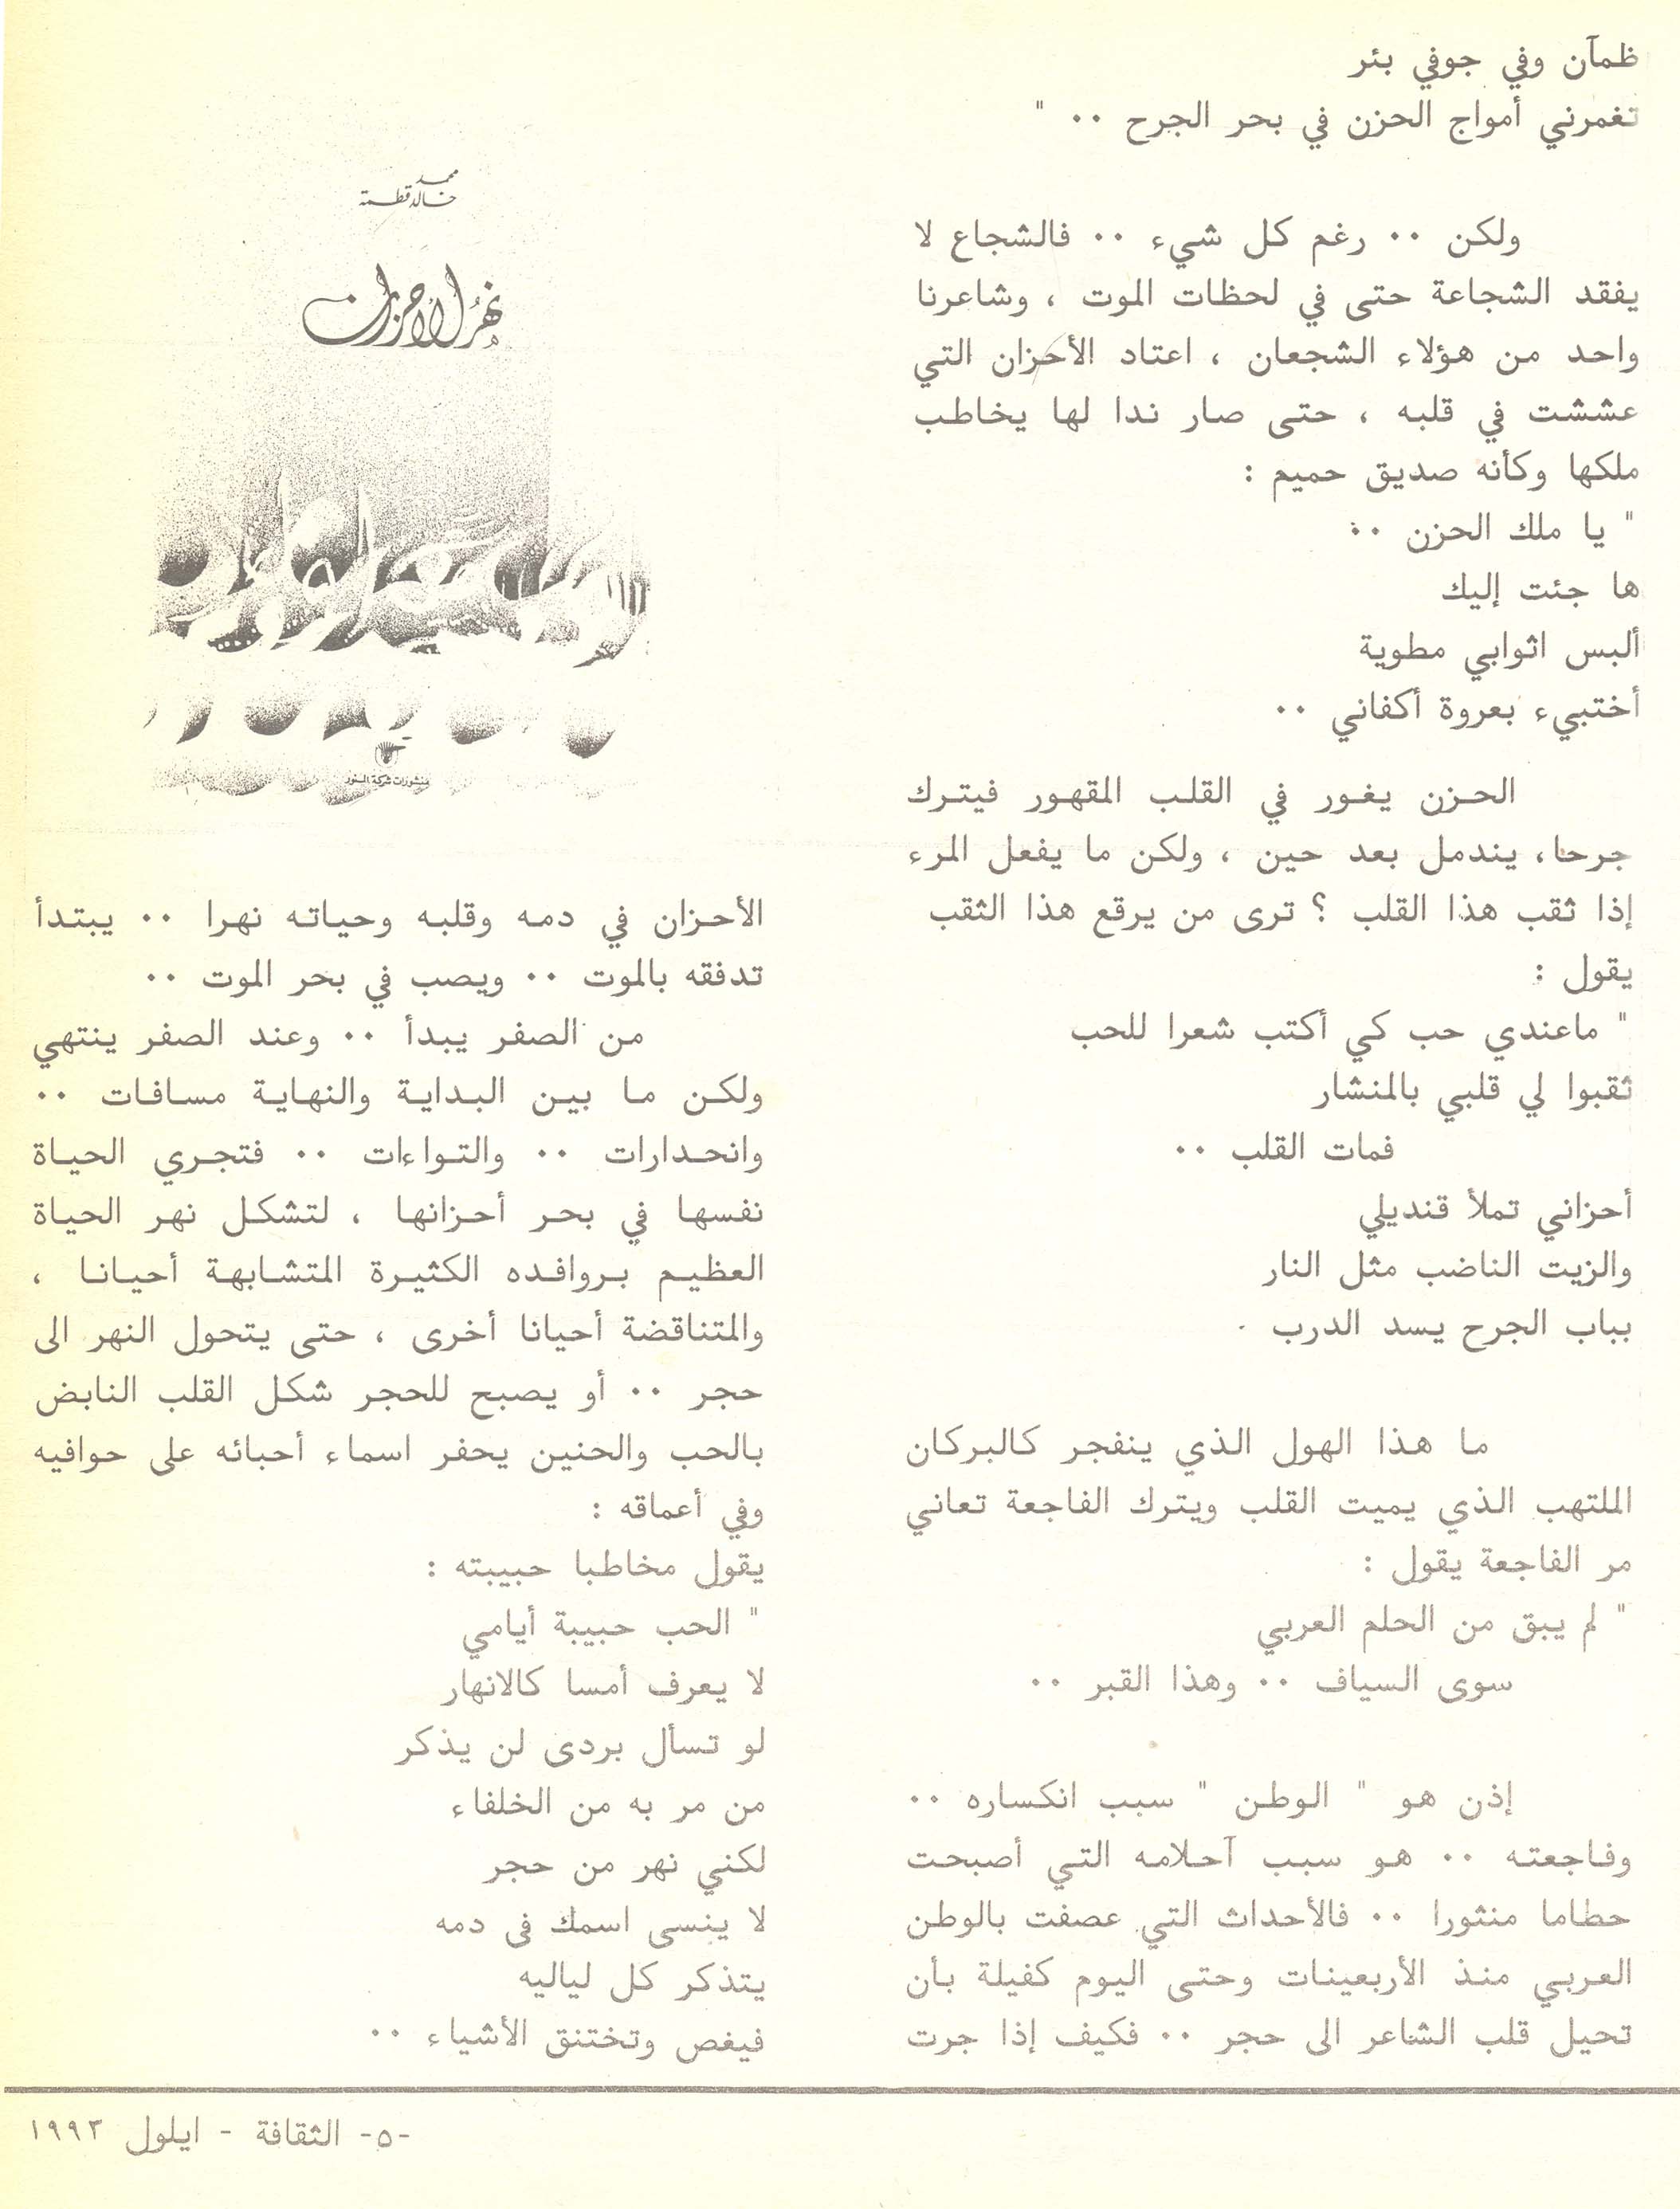 ظمآن وفي جوفي بئر
تغمرني أمواج الحزن في بحر الجرح ٠٠ "
ولكن ٠٠ رغم كل شيء ٠٠ فالشجاع لا
يفقد الشجاعة حتى في لحظات الموت ، وشاعرنا
واحد من هؤلاء الشجعان ، اعتاد الأحزان التي
عششت في قلبه ، حتى صار ندا لها يخاطب
ملكها وكأنه صديق حميم :
" يا ملك الحزن ٠٠
ها جئت إليك
ألبس اثوابي مطوية
أختبيء بعروة أكفاني ٠٠
الحزن يغور في القلب المقهور فيترك
جرحا، يندمل بعد حين ، ولكن ما يفعل المرء
إذا ثقب هذا القلب ؟ ترى من يرقع هذا الثقب
يقول :
" ماعندي حب كي أكتب شعرا للحب
ثقبوا لي قلبي بالمنشار
فمات القلب ٠٠
أحزاني تملأ قنديلي
والزيت الناضب مثل النار
بباب الجرح يسد الدرب ٠
ما هذا الهول الذي ينفجر كالبركان
الملتهب الذي يميت القلب ويترك الفاجعة تعاني
مر الفاجعة يقول :
" لم يبق من الحلم العربي
سوى السياف ٠٠ وهذا القبر ٠٠
إذن هو " الوطن " سبب انكساره ٠٠
وفاجعته ٠٠ هو سبب آحلامه التي أصبحت
حطاما منثورا ٠٠ فالأحداث التي عصفت بالوطن
العربي منذ الأربعينات وحتى اليوم كفيلة بأن
تحيل قلب الشاعر الى حجر ٠٠ فكيف إذا جرت
محمد
خالد قطمة
نهر الأحزان
منشورات شركة النور
الأحزان في دمه وقلبه وحياته نهرا ٠٠ يبتدأ
تدفقه بالموت ٠٠ ويصب في بحر الموت ٠٠
من الصفر يبدأ ٠٠ وعند الصفر ينتهي
ولكن ما بين البداية والنهاية مسافات ٠٠
وانحدارات ٠٠ والتواءات ٠٠ فتجري الحياة
نفسها في بحر أحزانها ، لتشكل نهر الحياة
العظيم بروافده الكثيرة المتشابهة أحيانا ،
والمتناقضة أحيانا أخرى ، حتى يتحول النهر الى
حجر ٠٠ أو يصبح للحجر شكل القلب النابض
بالحب والحنين يحفر اسماء أحبائه على حوافيه
وفي أعماقه :
يقول مخاطبا حبيبته :
" الحب حبيبة أيامي
لا يعرف أمسا كالانهار
لو تسأل بردى لن يذكر
من مر به من الخلفاء
لكني نهر من حجر
لا ينسى اسمك في دمه
يتذكر كل لياليه
فيغص وتختنق الأشياء ٠٠
-٥- الثقافة - ايلول ١٩٩٣